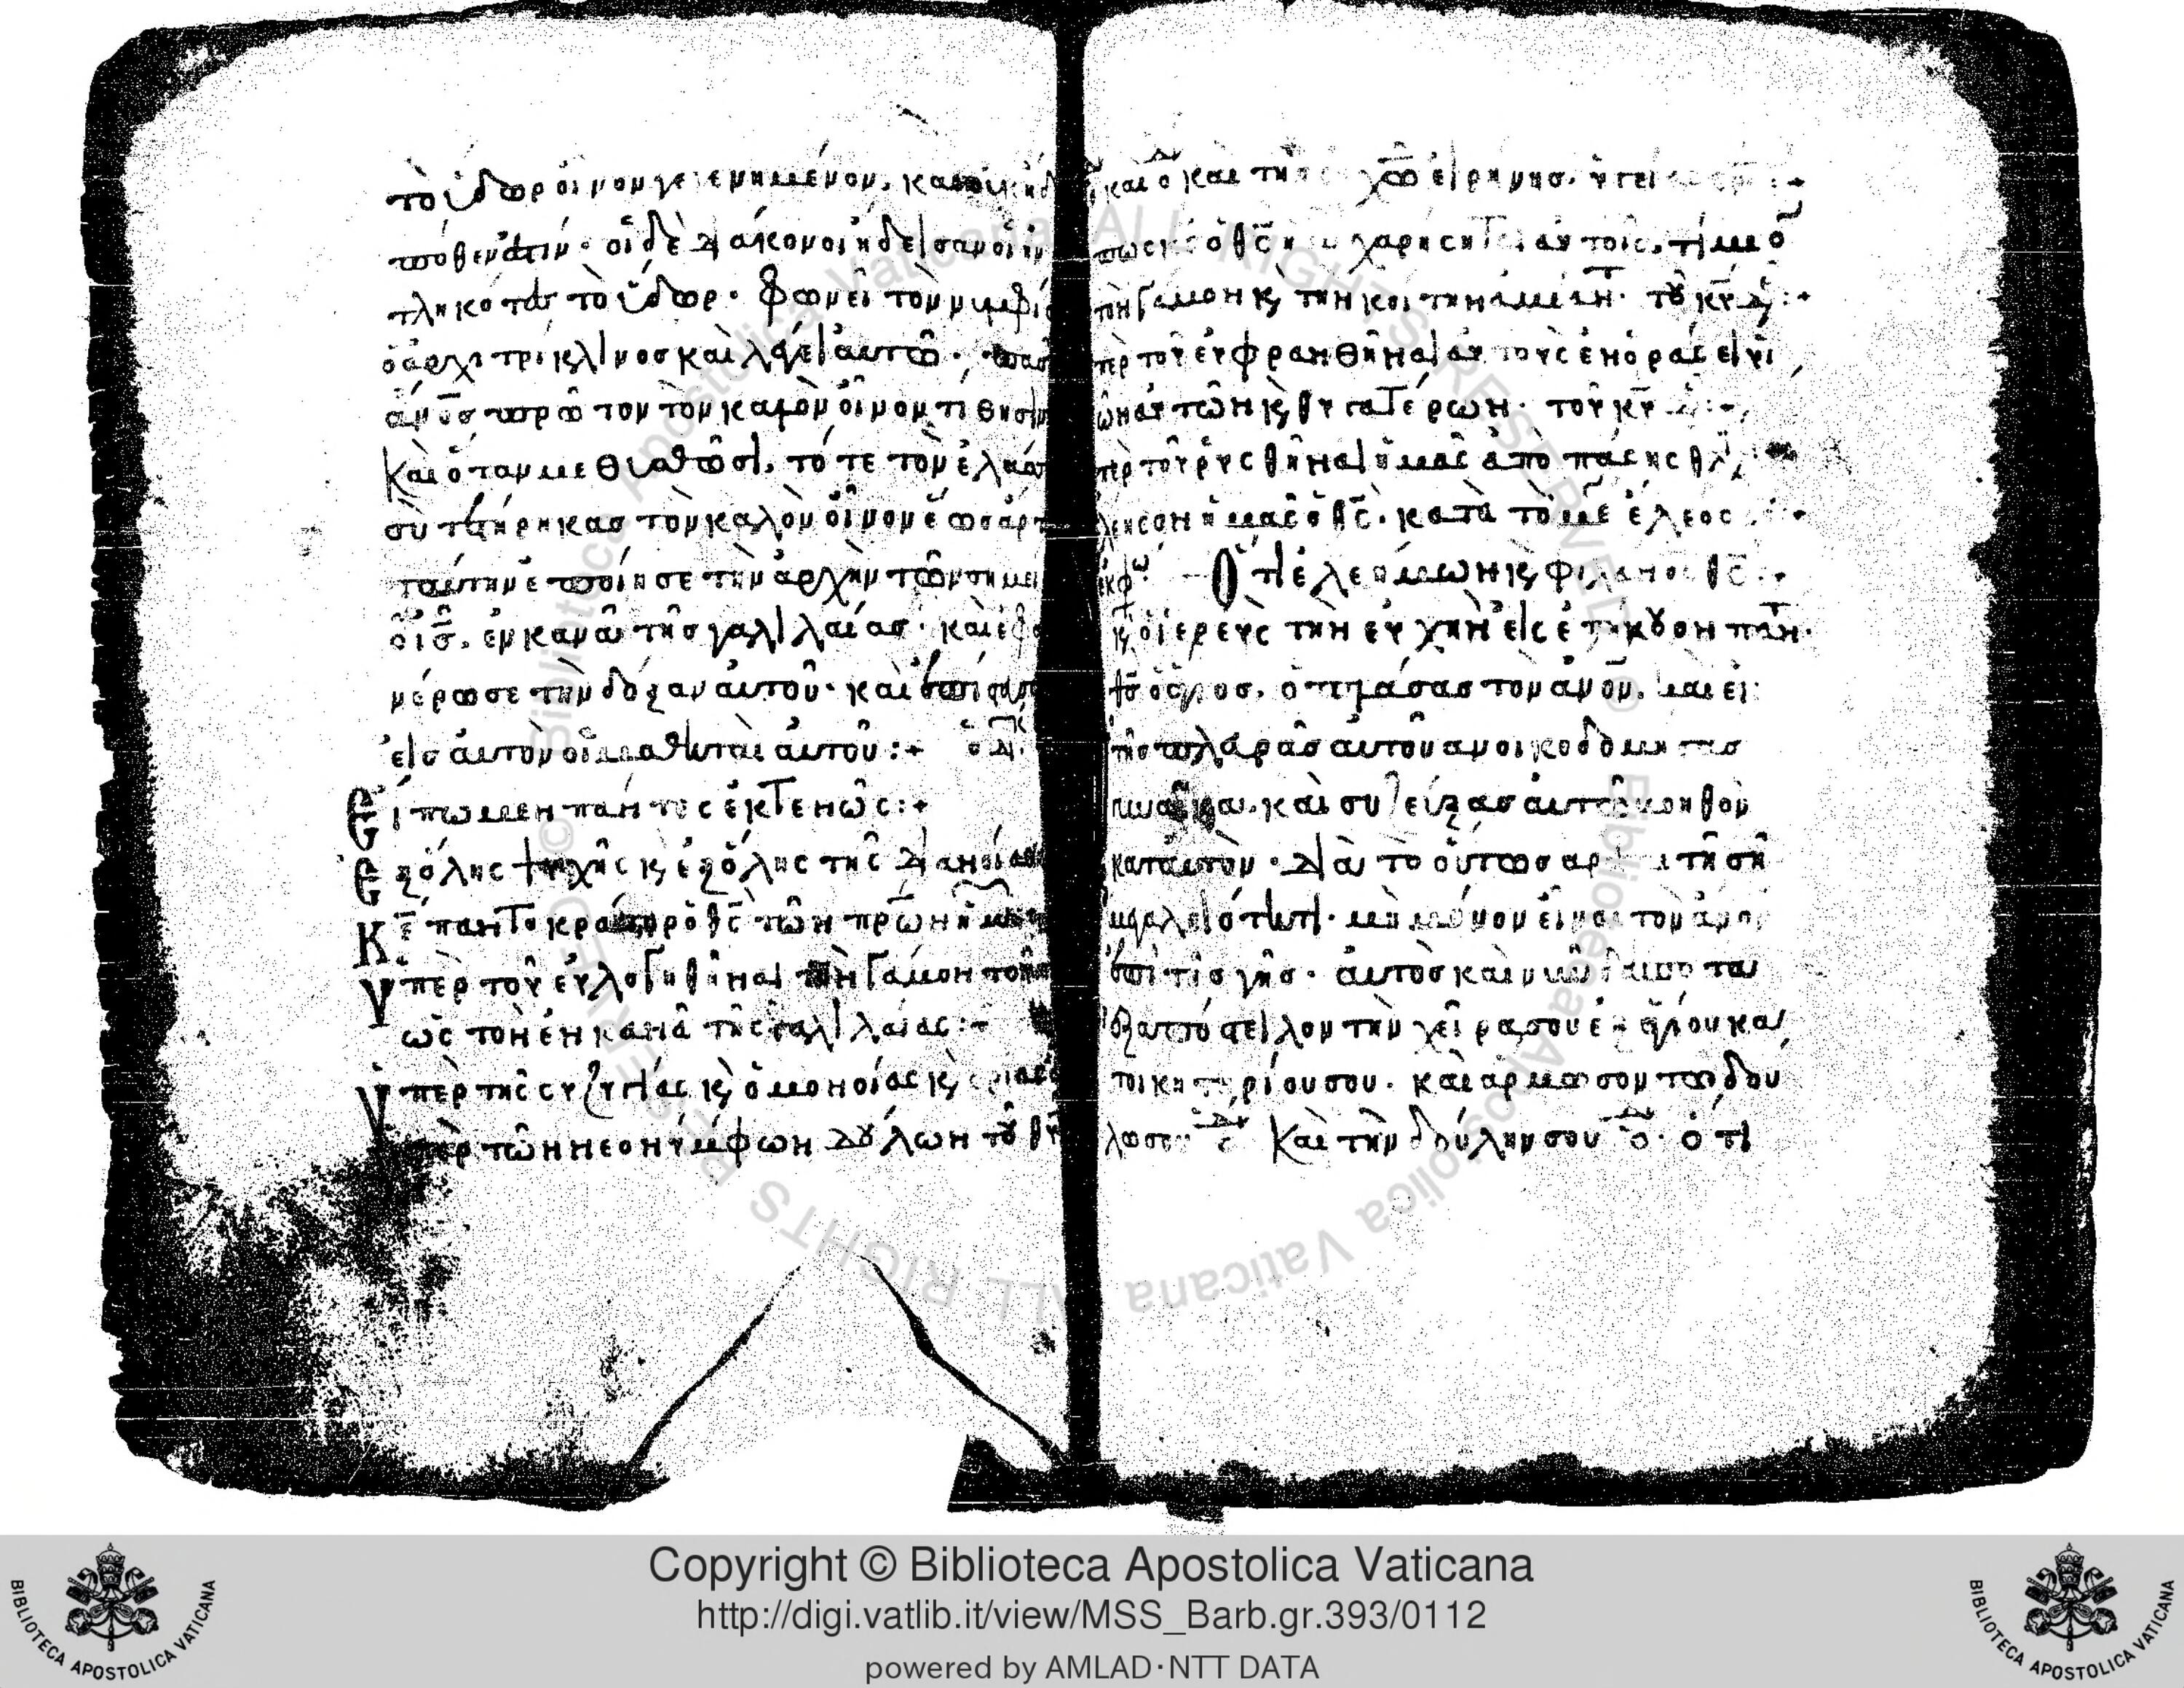 τὸ ὕδωρ οἶνον γεγενημένον. καὶ οὐκ ᾔδ
πόθεν ἐστίν· οἱ δὲ διάκονοι ἤδεισαν οἱ ἠν
τληκότες τὸ ὕδωρ· φωνεῖ τὸν νυμφίο
ὁ ἀρχιτρίκλινος καὶ λέγει αὐτῶ· πᾶσ
ἄν̅ο̅ς̅ πρῶτον τὸν καλὸν οἶνον τίθησιν
καὶ ὅταν μεθυσθῶσι, τότε τὸν ἐλάσ
σὺ τετήρηκας τὸν καλὸν οἶνον ἕως ἄρτ
ταύτην ἐποίησε τὴν ἀρχὴν τῶν σημεί
ὁ ἰ̅ς̅, ἐν κανᾶ τῆς γαλιλαίας· καὶ ἐφα
νέρωσε τὴν δόξαν αὐτοῦ· καὶ ἐπίστευσ
εἰς αὐτὸν οἱ μαθηταὶ αὐτοῦ :+ ὁ δι
Εἴπωμεν πάντες ἐκτενῶς :+
Ἐξ ὅλης ψυχῆς κ ἐξ ὅλης τῆς διανοίας
Κ̅ε̅ παντοκράτορ ὁ θ̅ς̅ τῶν πρ̅ω̅ν ἡμῶν
Ὑπὲρ τοῦ εὐλογηθῆναι τὸν γάμον τοῦτον
ὡς τὸν ἐν κανᾶ τῆς γαλιλαίας :+
Ὑπὲρ τῆς συζυγίας κ ὁμονοίας κ
Ὑπὲρ τῶν νεονύμφων δούλων τοῦ θ̅υ̅
καὶ ὁ καὶ τῆς χ̅ω̅ εἰρήνης·
πως κ̅ς̅ ὁ θ̅ς̅ ἡμ χαρήσηται αὐτοῖς, τίμιο
τὸν γάμον κ τὴν κοίτην ἀμίαντ· τοῦ κ̅υ̅ δ :+
πὲρ τοῦ εὐφρανθῆναι αὐτοὺς ἐν ὁράσει υἱ
ῶν αὐτῶν κ θυγατέρων· τοῦ κ̅υ̅ :+
πὲρ τοῦ ῥυσθῆναι ἡμᾶς ἀπὸ πάσης θλ
λέησον ἡμᾶς ὁ θ̅ς̅. κατὰ τὸ μέ ἔλεος :+
ἐκφω Ὅτι ἐλεήμων κ φιλάνος θ̅ς̅ :+
κ ὁ ἱερεὺς τὴν εὐχὴν εἰς ἐπήκοον πάντ·
θ̅ς̅ ὁ ὁ πλάσας τὸν ἄν̅ο̅ν̅. καὶ ἐκ
τῆς πλευρᾶς αὐτοῦ ἀνοικοδομήσας
γυναῖκα. καὶ συζεύξας αὐτῶ βοηθὸν
κατ' αὐτὸν· διὰ τὸ οὕτως ἀρ τῆ σῆ
μεγαλειότητι· μὴ μόνον εἶναι τὸν ἄν
ἐπὶ τῆς γῆς· αὐτὸς καὶ νῦν δέσποτα
ἐξαπόστειλον τὴν χεῖρα σου ἐξ ἁγίου κα
τοικητηρίου σου. καὶ ἅρμοσον τὸν δοῦ
λον σου Καὶ τὴν δούλην σου· ὅτι
Copyright © Biblioteca Apostolica Vaticana
http://digi.vatlib.it/view/MSS_Barb.gr.393/0112
powered by AMLAD·NTT DATA
BIBLIOTECA APOSTOLICA VATICANA
BIBLIOTECA APOSTOLICA VATICANA